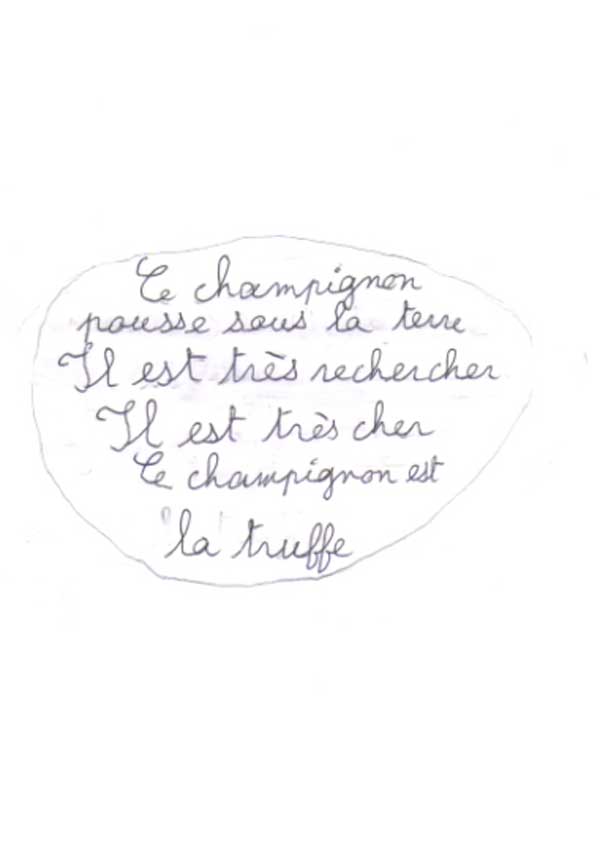 Ce champignon
pousse sous la terre
Il est très rechercher
Il est très cher
Ce champignon est
la truffe